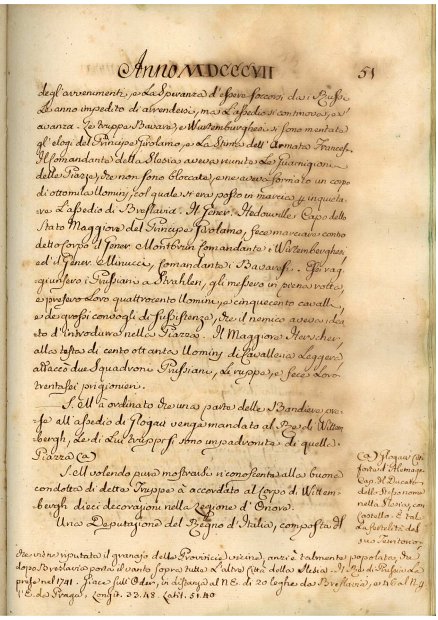 Anno MDCCCVII
51
degl'avvenimenti, e la Speranza d'esser soccorsi da i Russi
Le anno impedito di arrendersi, ma l'assedio si continova, e s'
avanza. Le truppe Bavare, e Wurtemburghesi si sono meritate
gl'elogj del Principe Girolamo, e la Stima dell'Armata Francese
Il Comandante della Slesia aveva riunite Le Guarnigioni
delle Piazze, che non sono bloccate, e ne aveva formato un corpo
di ottomila Uomini, col quale si era posto in marcia p inquieta-
re L'assedio di Breslavia. Il Gener. Hedouville Capo dello
Stato Maggiore del Principe Girolamo, fece marciare contro
detto Corpo il Gener. Montbrun Comandante i Wurtemberghesi
ed il Gener. Minucci, Comandante i Bavaresi. Essi rag-
giunsero i Prussiani a Strahlen, gli messero in piena rotta
e presero Loro quattrocento Uomini, e cinquecento cavalli
e de grossi convogli di sussistenze, che il nemico aveva idea-
to d'introdurre nella Piazza. Il Maggiore Herscher,
alla testa di cento ottanta Uomini di Cavalleria Leggiera
attaccò due Squadroni Prussiani, Le ruppe, e fece Loro
trentasei prigionieri.
S.M. à ordinato che una parte delle Bandiere pre-
se all'assedio di Glogau venga mandato al Re di Wittem-
bergh, Le di Lui truppe si sono impadronite di quella
Piazza (a)
S.M. volendo pure mostrarsi riconoscente alla buona
condotta di dette Truppe à accordato al Corpo di Wittem-
bergh dieci decorazioni nella Legione d'Onore.
Una Deputazione del Regno d'Italia, composta di
(a) Glogau Cit.
forte d'Alemagna
Cap. di Ducato
dello stesso nome
nella Slesia, con
Castello. È tal
la fertilità del
suo Territorio,
che viene reputata il granajo delle Provincie vicine, anzi è talmente popolata, che
dopo Breslavia porta il vanto sopra tutte L'altre Città della Slesia. Il Re di Prussia La
prese nel 1741. Giace sull'Oder, in distanza al N.E. di 20 leghe da Breslavia, e 46 al N. p
l'E. da Praga, Longit. 33.48. Latit. 51.40